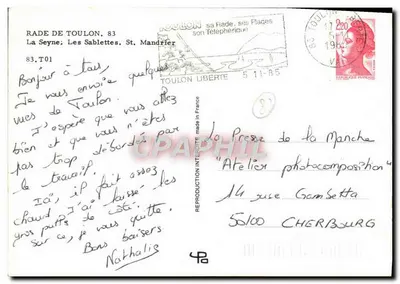 RADE DE TOULON, 83
La Seyne; Les Sablettes, St. Mandrier
83.T01
Bonjour à tous,
Je vous envoie quelques
vues de Toulon.
J'espère que vous allez
bien et que vous n'êtes
pas trop débordés par
le travail.
Ici, il fait assez
chaud. J'ai laissé les
gros pulls de côté.
Sur ce, je vous quitte.
Bons baisers
Nathalie
REPRODUCTION INTERDITE
sa Rade, ses Plages
son Téléphérique
TOULON LIBERTE 5-11-85
83 TOULON
2,20
CPAPHIL
La Presse de la Manche
"Atelier photocomposition"
14 rue Gambetta
50100 CHERBOURG